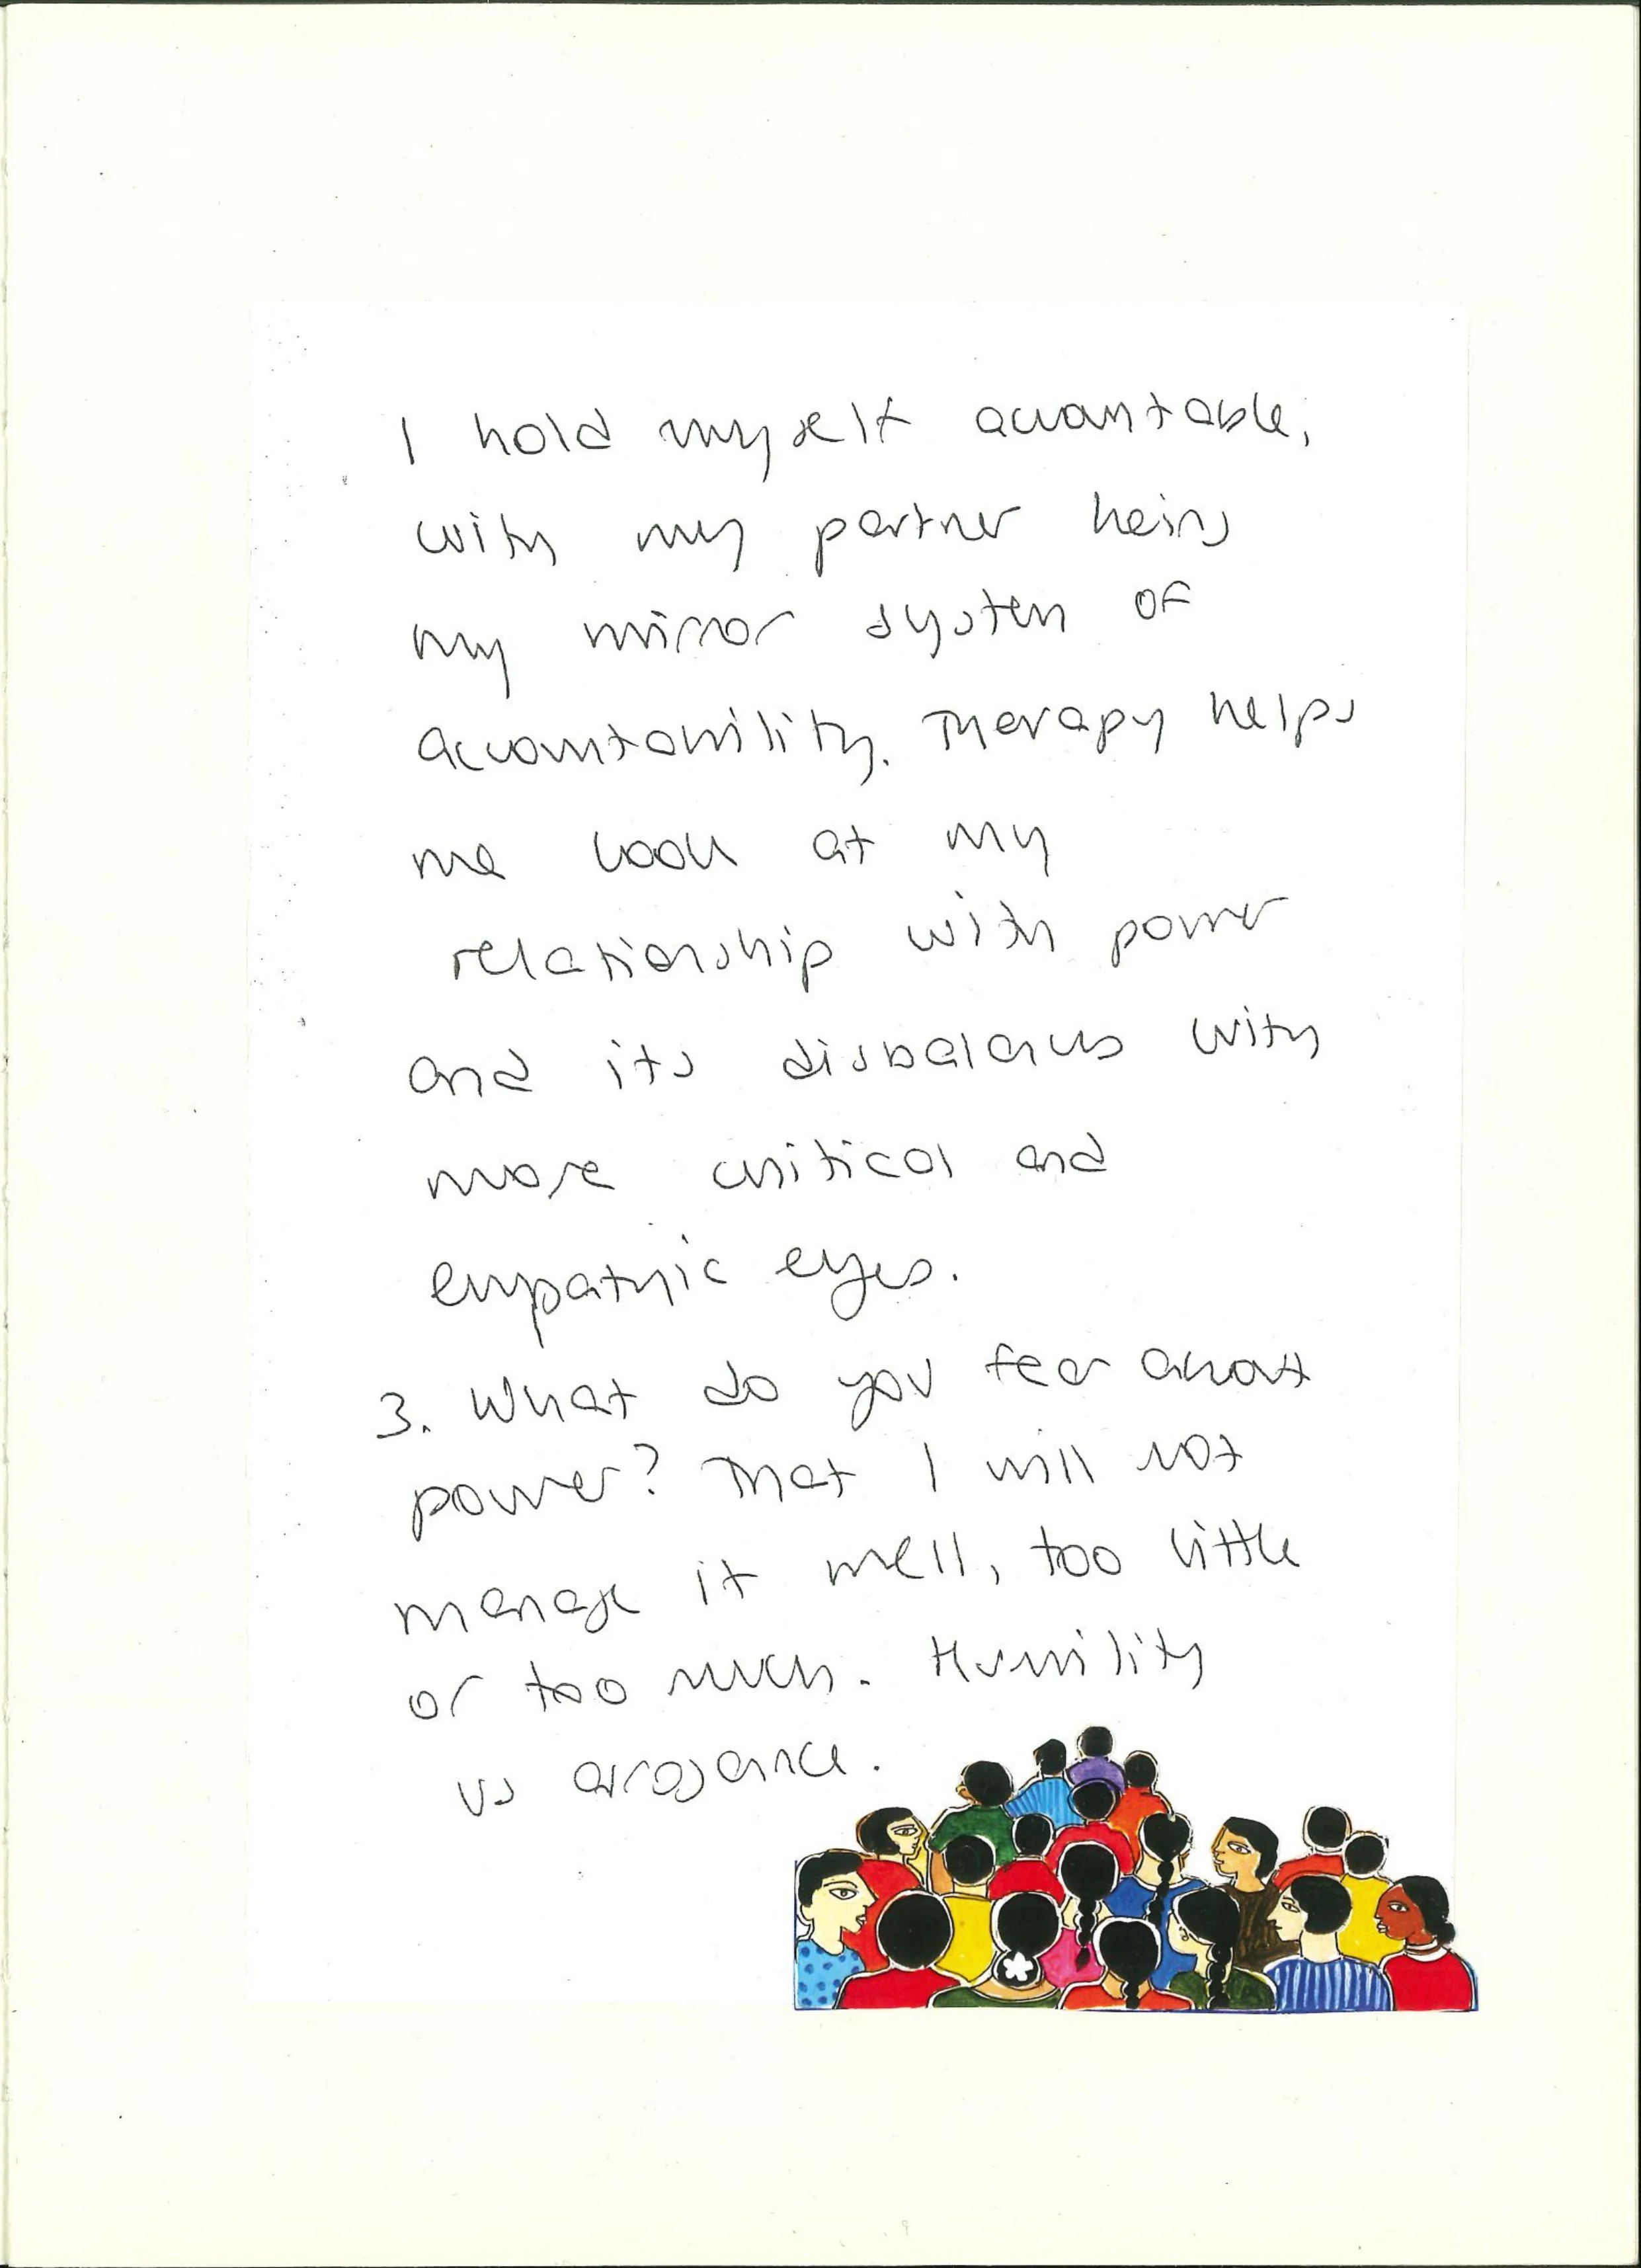 I hold myself accountable,
with my partner being
my mirror system of
accountability. Therapy helps
me look at my
relationship with power
and its disbalances with
more critical and
empathic eyes.
3. What do you fear about
power? That I will not
manage it well, too little
or too much. Humility
vs arrogance.